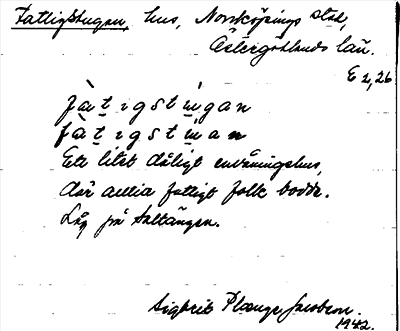 Fattigstugan, hus, Norrköpings stad,
Östergötlands län.
E 2,26
fàtıgstúgan
fàtıgstúan
Ett litet dåligt envåningshus,
där allra fattigt folk bodde.
Låg på Saltängen.
Sigbrit Plænge Jacobson.
1942.